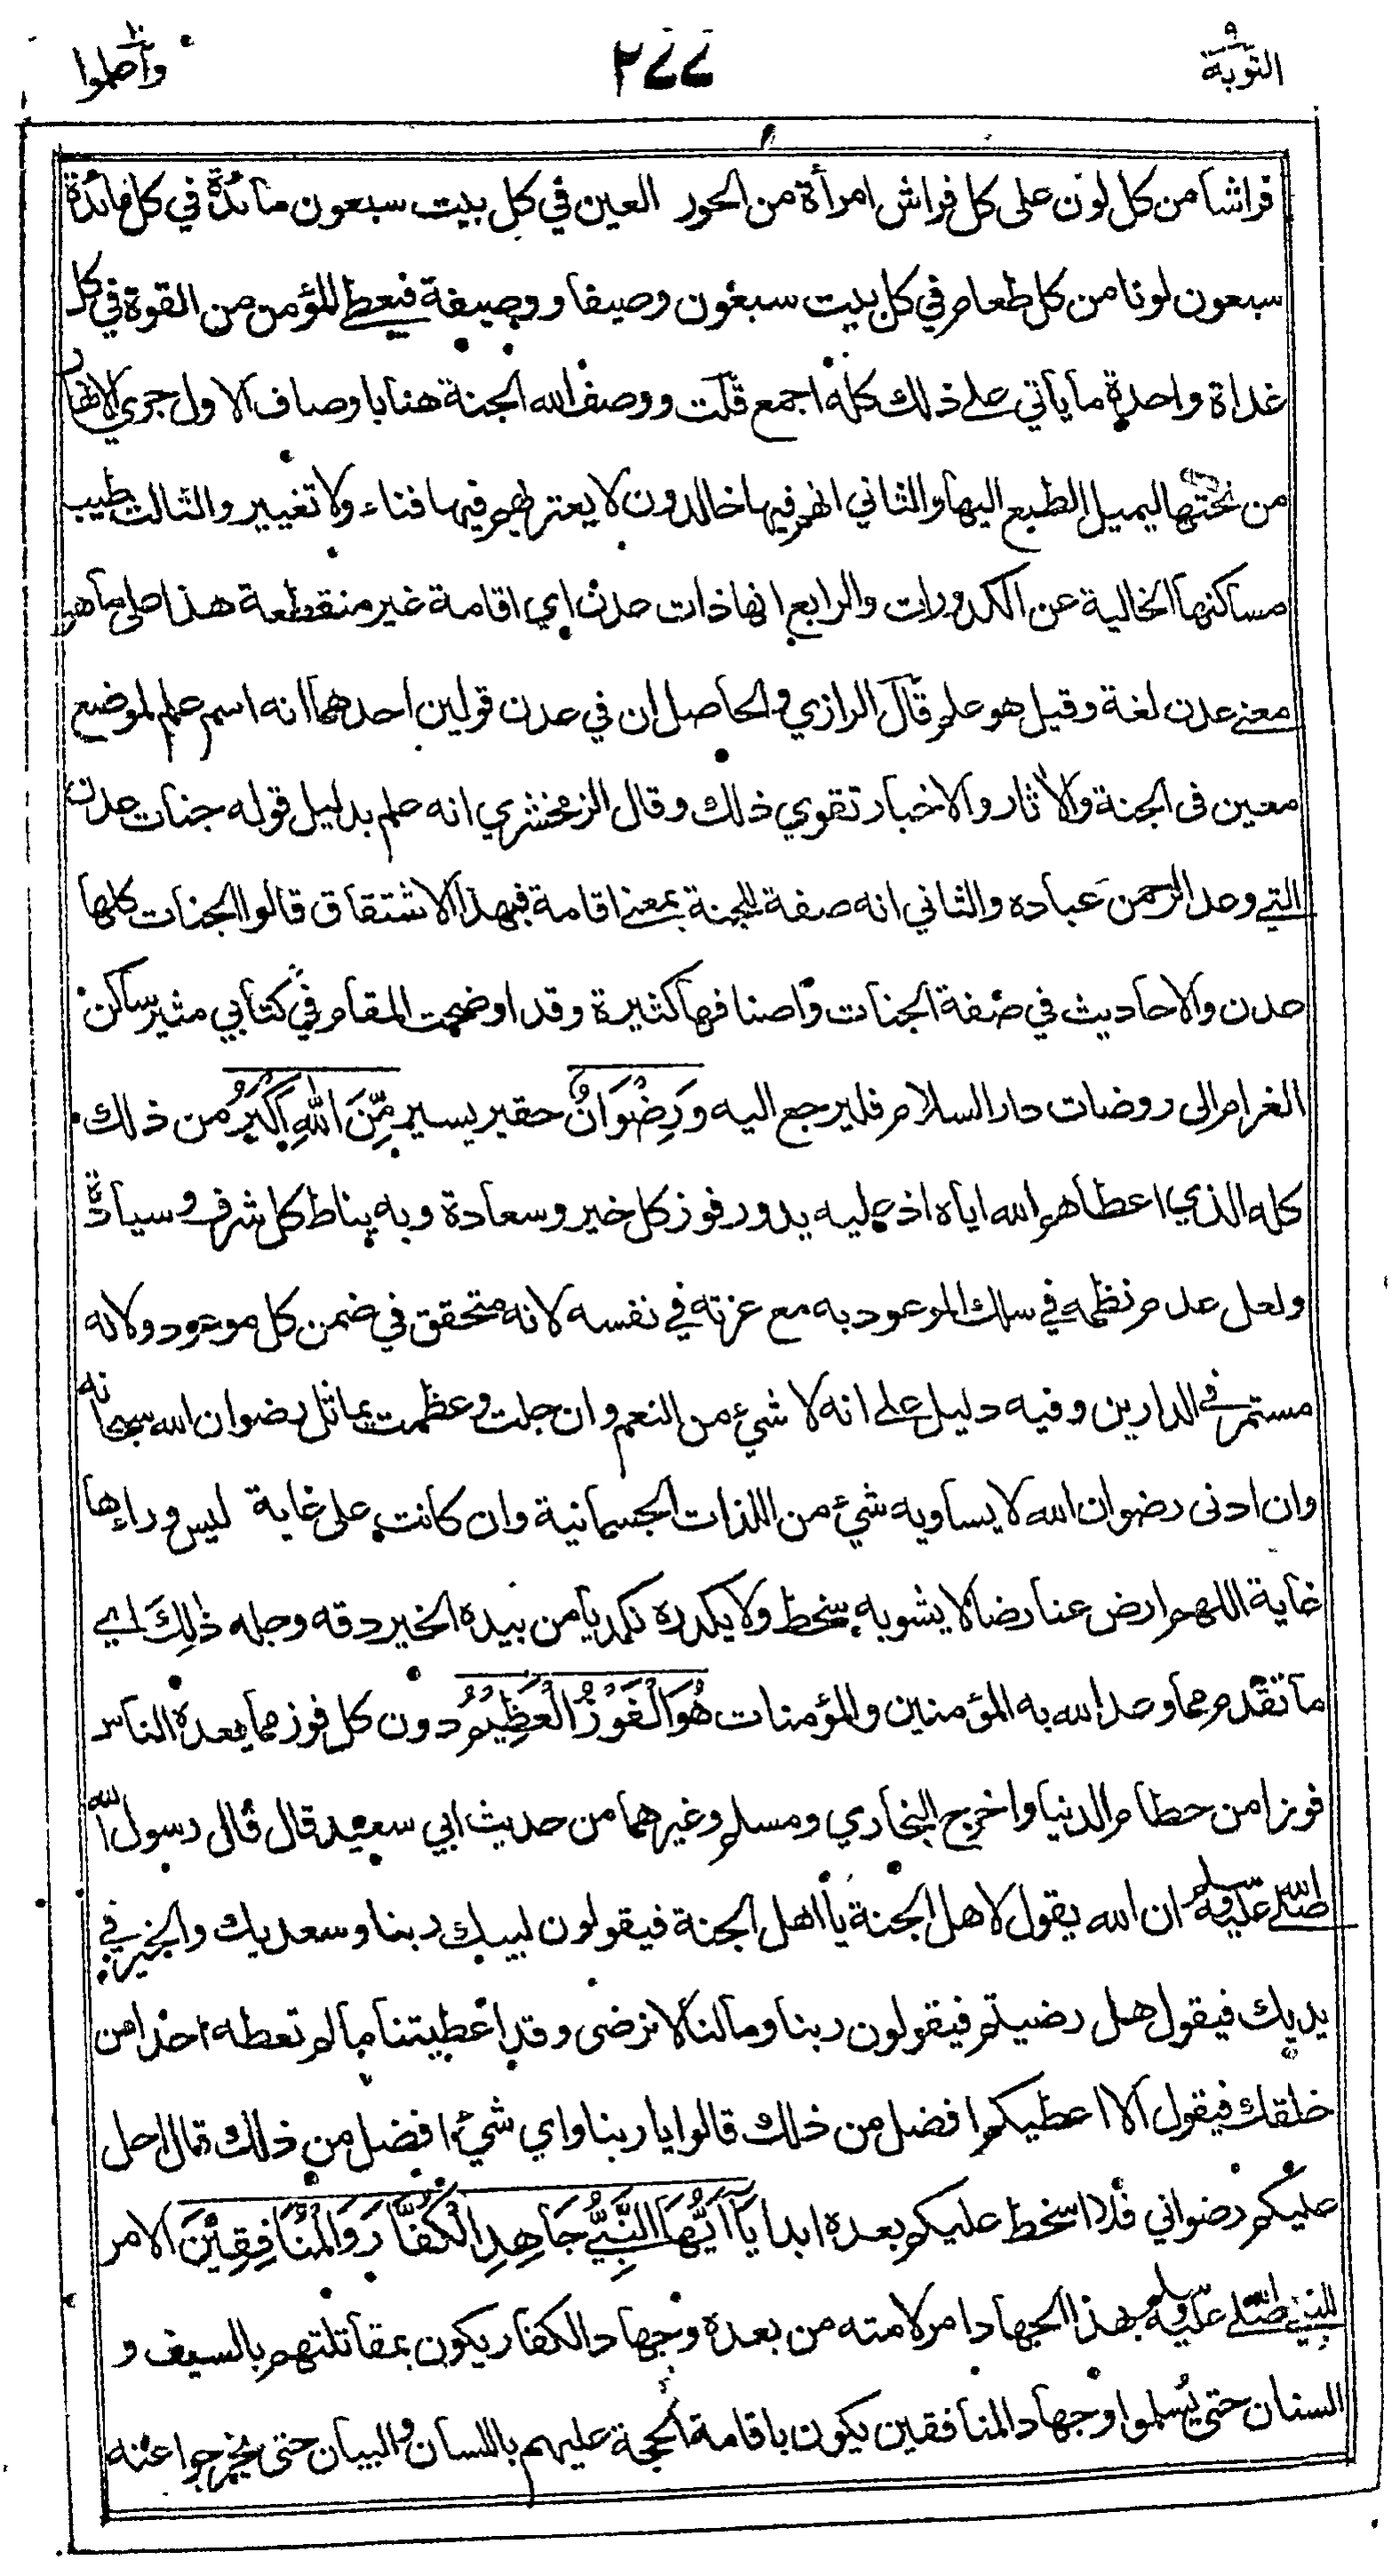 التوبة ٩
٢٧٧
واعلموا ١٠
فراشا من كل لون على كل فراش امرأة من الحور العين في كل بيت سبعون مائدة في كل مائدة
سبعون لونا من كل طعام في كل بيت سبعون وصيفا ووصيفة فيعطى المؤمن من القوة في كل
غداة واحدة ما يأتي على ذلك كله اجمع قلت ووصف الله الجنة هنا باوصاف الاول جري الانهار
من تحتها ليميل الطبع اليها والثاني انهم فيها خالدون لا يعتريهم فيها فناء ولا تغيير والثالث طيب
مساكنها الخالية عن الكدورات والرابع انها ذات عدن اي اقامة غير منقطعة هذا على ما هو
معنى عدن لغة وقيل هو علم قال الرازي والحاصل ان في عدن قولين احدهما انه اسم علم لموضع
معين في الجنة والاثار والاخبار تقوي ذلك وقال الزمخشري انه علم بدليل قوله جنات عدن
التي وعد الرحمن عباده والثاني انه صفة للجنة بمعنى اقامة فبهذا الاشتقاق قالوا الجنات كلها
عدن والاحاديث في صفة الجنات واصنافها كثيرة وقد اوضحت المقام في كتابي مثير ساكن
الغرام الى روضات دار السلام فليرجع اليه وَرِضْوَانٌ حقير يسير مِّنَ اللهِ اَكْبَرُ من ذلك
كله الذي اعطاهم الله اياه اذ عليه يدور فوز كل خير وسعادة وبه يناط كل شرف وسيادة
ولعل عدم نظمه في سلك الموعود به مع عزته في نفسه لانه متحقق في ضمن كل موعود ولانه
مستمر في الدارين وفيه دليل على انه لا شيء من النعم وان جلت وعظمت يماثل رضوان الله سبحانه
وان ادنى رضوان الله لا يساويه شيء من اللذات الجسمانية وان كانت على غاية ليس وراءها
غاية اللهم ارض عنا رضا لا يشوبه سخط ولا يكدره نكد يا من بيده الخير دقه وجله ذٰلِكَ اي
ما تقدم مما وعد الله به المؤمنين والمؤمنات هُوَ الْفَوْزُ الْعَظِيْمُ دون كل فوز مما يعده الناس
فوزا من حطام الدنيا واخرج البخاري ومسلم وغيرهما من حديث ابي سعيد قال قال رسول الله
صلى الله عليه وسلم ان الله يقول لاهل الجنة يا اهل الجنة فيقولون لبيك ربنا وسعديك والخير في
يديك فيقول هل رضيتم فيقولون ربنا وما لنا لا نرضى وقد اعطيتنا ما لم تعطه احدا من
خلقك فيقول الا اعطيكم افضل من ذلك قالوا يا ربنا واي شيء افضل من ذلك قال احل
عليكم رضواني فلا اسخط عليكم بعده ابدا يَآ اَيُّهَا النَّبِيُّ جَاهِدِ الْكُفَّارَ وَالْمُنَافِقِيْنَ الامر
للنبي صلى الله عليه وسلم بهذا الجهاد امر لامته من بعده وجهاد الكفار يكون بمقاتلتهم بالسيف و
السنان حتى يسلموا وجهاد المنافقين يكون باقامة الحجة عليهم باللسان والبيان حتى يخرجوا عنه